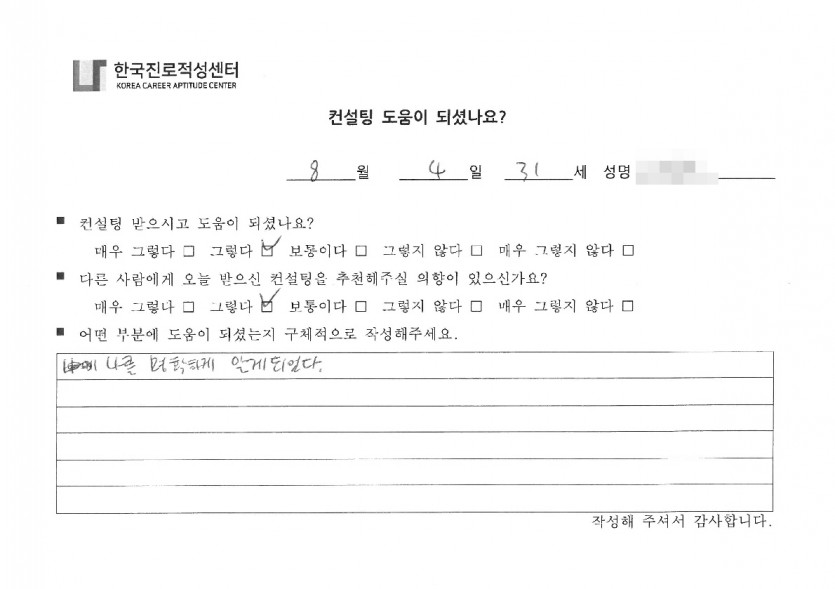 한국진로적성센터
KOREA CAREER APTITUDE CENTER
컨설팅 도움이 되셨나요?
8 월 4 일 31 세 성명
■ 컨설팅 받으시고 도움이 되셨나요?
매우 그렇다 □ 그렇다 ☑ 보통이다 □ 그렇지 않다 □ 매우 그렇지 않다 □
■ 다른 사람에게 오늘 받으신 컨설팅을 추천해주실 의향이 있으신가요?
매우 그렇다 □ 그렇다 ☑ 보통이다 □ 그렇지 않다 □ 매우 그렇지 않다 □
■ 어떤 부분에 도움이 되셨는지 구체적으로 작성해주세요.
나를 명확하게 알게되었다.
작성해 주셔서 감사합니다.